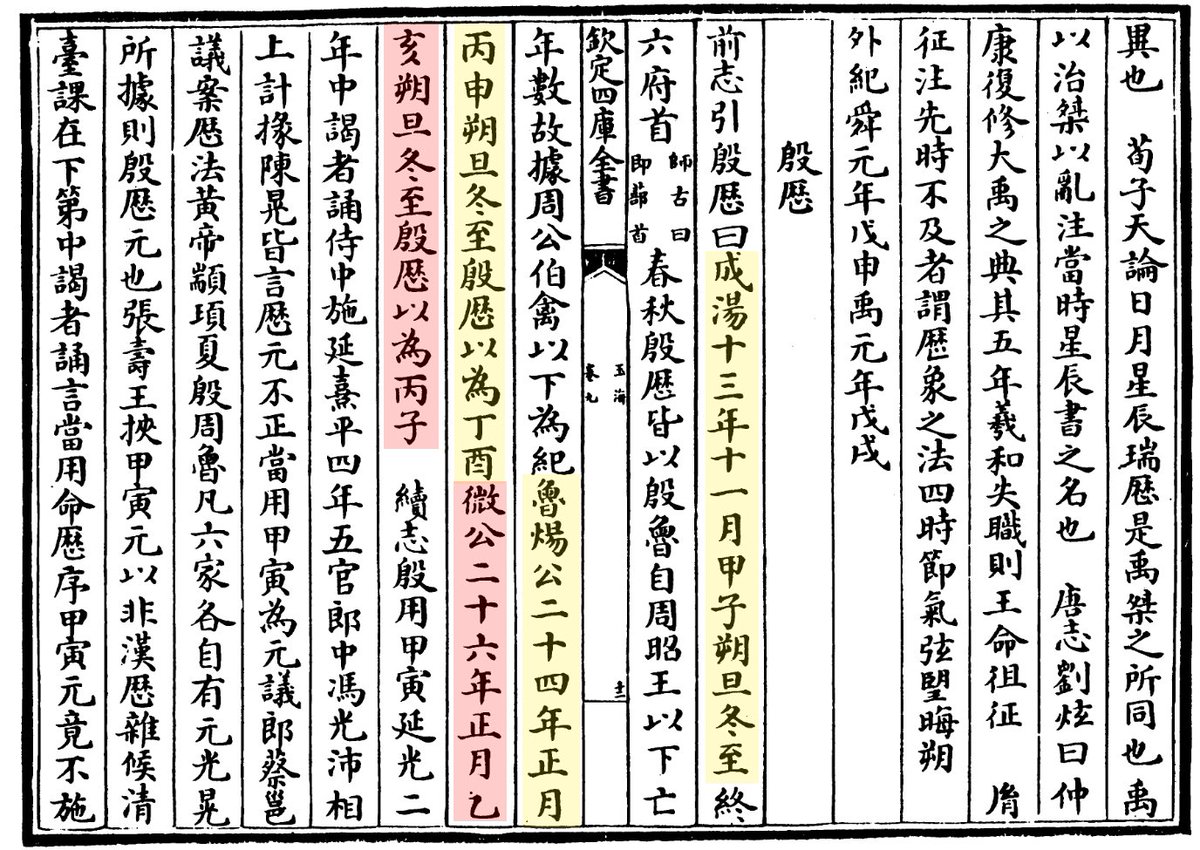 異也　荀子天論日月星辰瑞厯是禹桀之所同也禹
以治桀以亂注當時星辰書之名也　唐志劉炫曰仲
康復修大禹之典其五年羲和失職則王命徂征　㣧
征注先時不及者謂厯象之法四時節氣弦朢晦朔
外紀舜元年戊申禹元年戊戌
殷厯
前志引殷厯曰成湯十三年十一月甲子朔旦冬至終
六府首
師古曰
即蔀首
春秋殷厯皆以殷魯自周昭王以下亡
欽定四庫全書
玉海
卷九
十二
年數故據周公伯禽以下為紀魯煬公二十四年正月
丙申朔旦冬至殷厯以為丁酉微公二十六年正月乙
亥朔旦冬至殷厯以為丙子　續志殷用甲寅延光二
年中謁者誦侍中施延熹平四年五官郎中馮光沛相
上計掾陳晃皆言厯元不正當用甲寅為元議郎蔡邕
議案厯法黃帝顓頊夏殷周魯凡六家各自有元光晃
所據則殷厯元也張壽王挾甲寅元以非漢厯雜候清
臺課在下第中謁者誦言當用命厯序甲寅元竟不施